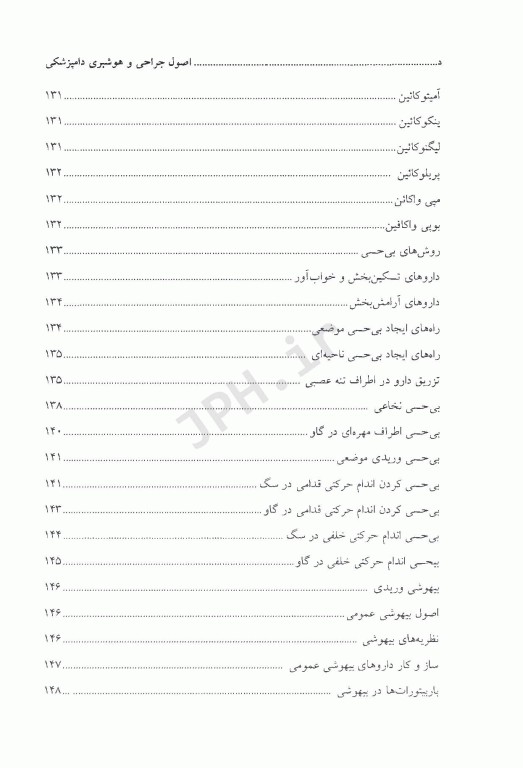 د ........ اصول جراحی و هوشبری دامپزشکی
آمیتوکائین ........ ۱۳۱
ینکوکائین ........ ۱۳۱
لیگنوکائین ........ ۱۳۱
پریلوکائین ........ ۱۳۲
مپی واکائن ........ ۱۳۲
بوپی واکافین ........ ۱۳۲
روش‌های بی‌حسی ........ ۱۳۳
داروهای تسکین‌بخش و خواب‌آور ........ ۱۳۳
داروهای آرامش‌بخش ........ ۱۳۴
راه‌های ایجاد بی‌حسی موضعی ........ ۱۳۴
راه‌های ایجاد بی‌حسی ناحیه‌ای ........ ۱۳۵
تزریق دارو در اطراف تنه عصبی ........ ۱۳۵
بی‌حسی نخاعی ........ ۱۳۸
بی‌حسی اطراف مهره‌ای در گاو ........ ۱۴۰
بی‌حسی وریدی موضعی ........ ۱۴۱
بی‌حسی کردن اندام حرکتی قدامی در سگ ........ ۱۴۱
بی‌حسی کردن اندام حرکتی قدامی در گاو ........ ۱۴۳
بی‌حسی اندام حرکتی خلفی در سگ ........ ۱۴۴
بیحسی اندام حرکتی خلفی در گاو ........ ۱۴۵
بیهوشی وریدی ........ ۱۴۶
اصول بیهوشی عمومی ........ ۱۴۶
نظریه‌های بیهوشی ........ ۱۴۶
ساز و کار داروهای بیهوشی عمومی ........ ۱۴۷
باربیتورات‌ها در بیهوشی ........ ۱۴۸
JPH.ir